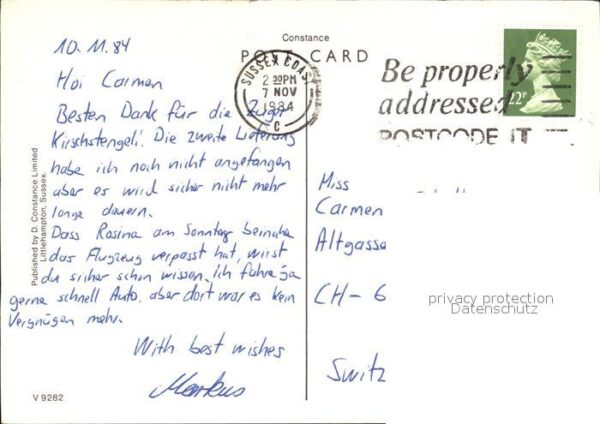 Constance
POST CARD
10.11.84
Hoi Carmen
Besten Dank für die Zuger
Kirschstengeli! Die zweite Lieferung
habe ich noch nicht angefangen
aber es wird sicher nicht mehr
lange dauern.
Dass Rosina am Sonntag beinahe
das Flugzeug verpasst hat, wirst
du sicher schon wissen. Ich fahre ja
gerne schnell Auto, aber dort war es kein
Vergnügen mehr.
With best wishes
Markus
SUSSEX COAST
2 30PM
7 NOV
1984
C
Be properly
addressed
POSTCODE IT
22P
Miss
Carmen
Altgasse
CH-6
Switz
privacy protection
Datenschutz
Published by D. Constance Limited
Littlehampton, Sussex.
V 9282